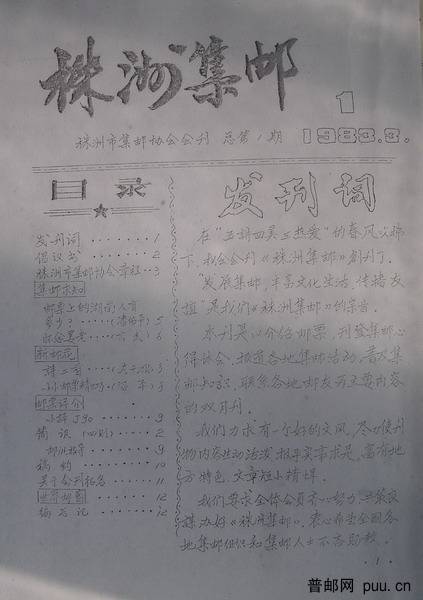 株洲集邮
1
1983.3.
株洲市集邮协会会刊 总第1期
目录
发刊词·······1
倡议书·······2
株洲市集邮协会章程··3
集邮知识
邮票上的湖南人有
多少？
新邮苑
邮票评介
小辞J90····9
简讯（四则）····2
稿约·······10
关于会刊报名····11
世界趣闻·····12
编后记······12
发刊词
在“五讲四美三热爱”的春风吹拂
下，我会会刊《株洲集邮》创刊了。
“发展集邮，丰富文化生活，传播友
谊”是我们《株洲集邮》的宗旨。
本刊是以介绍邮票，刊登集邮心
得体会，报道各地集邮活动，普及集
邮知识，联系各地邮友为主要内容
的双月刊。
我们力求有一个好的文风，尽力使刊
物内容生动活泼，报导实事求是，富有地
方特色，文章短小精悍。
我们要求全体会员齐心努力，共策良
谋办好《株洲集邮》，衷心希望全国各
地集邮组织和集邮人士不吝助教。
·1·
普邮网 puu.cn